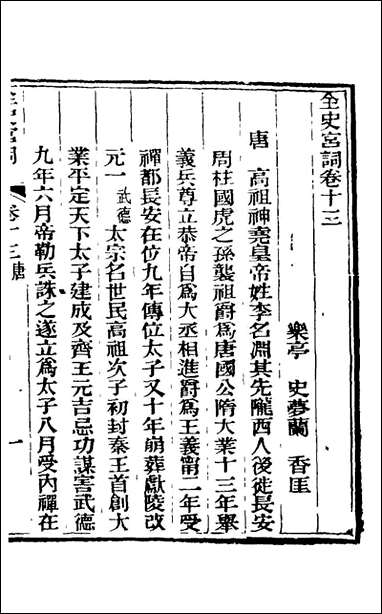 全史宮詞卷十三
樂亭 史夢蘭 香厓
唐 高祖神堯皇帝姓李名淵其先隴西人後徙長安
周柱國虎之孫襲祖爵爲唐國公隋大業十三年舉
義兵尊立恭帝自爲大丞相進爵爲王義甯二年受
禪都長安在位九年傳位太子又十年崩葬獻陵改
元一 武德 太宗名世民高祖次子初封秦王首創大
業平定天下太子建成及齊王元吉忌功謀害武德
九年六月帝勒兵誅之遂立爲太子八月受內禪在
卷十三 唐 一